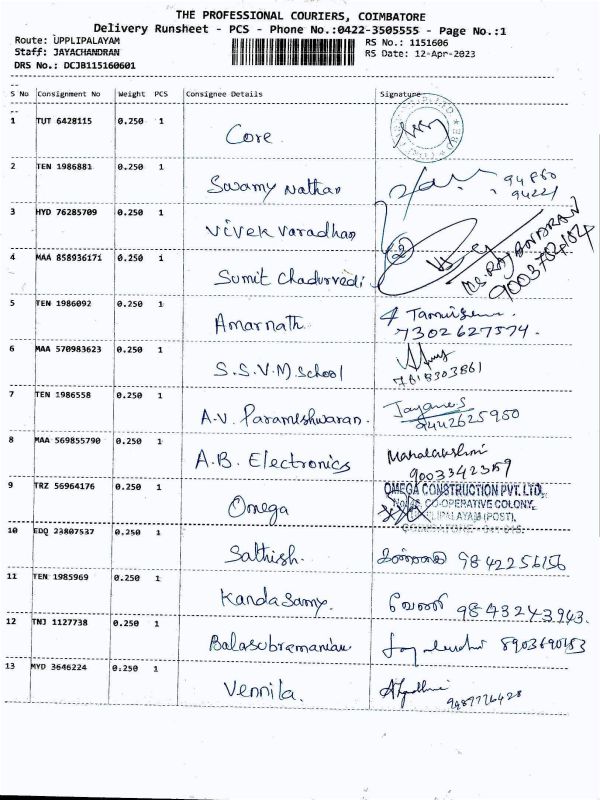 THE PROFESSIONAL COURIERS, COIMBATORE
Delivery Runsheet - PCS - Phone No.:0422-3505555 - Page No.:1
Route: UPPLIPALAYAM RS No.: 1151606
Staff: JAYACHANDRAN RS Date: 12-Apr-2023
DRS No.: DCJB115160601
S No Consignment No Weight PCS Consignee Details Signature
1 TUT 6428115 0.250 1 Core
2 TEN 1986881 0.250 1 Swamy Nathan
3 HYD 76285709 0.250 1 Vivek Varadhan
4 MAA 858936171 0.250 1 Sumit Chadurvedi
5 TEN 1986092 0.250 1 Amarnath
7302627574.
6 MAA 570983623 0.250 1 S.S.V.M.School
7618303861
7 TEN 1986558 0.250 1 A.V. Parameshwaran.
9442625950
8 MAA 569855790 0.250 1 A.B. Electronics Mahalakshmi
9003342359
9 TRZ 56964176 0.250 1 Omega OMEGA CONSTRUCTION PVT. LTD.,
CO-OPERATIVE COLONY,
(POST),
10 EDQ 23807537 0.250 1 Sathish. 9842256156
11 TEN 1985969 0.250 1 Kandasamy. 9843243943.
12 TNJ 1127738 0.250 1 Balasubramanian
13 MYD 3646224 0.250 1 Vennila. 9487776428